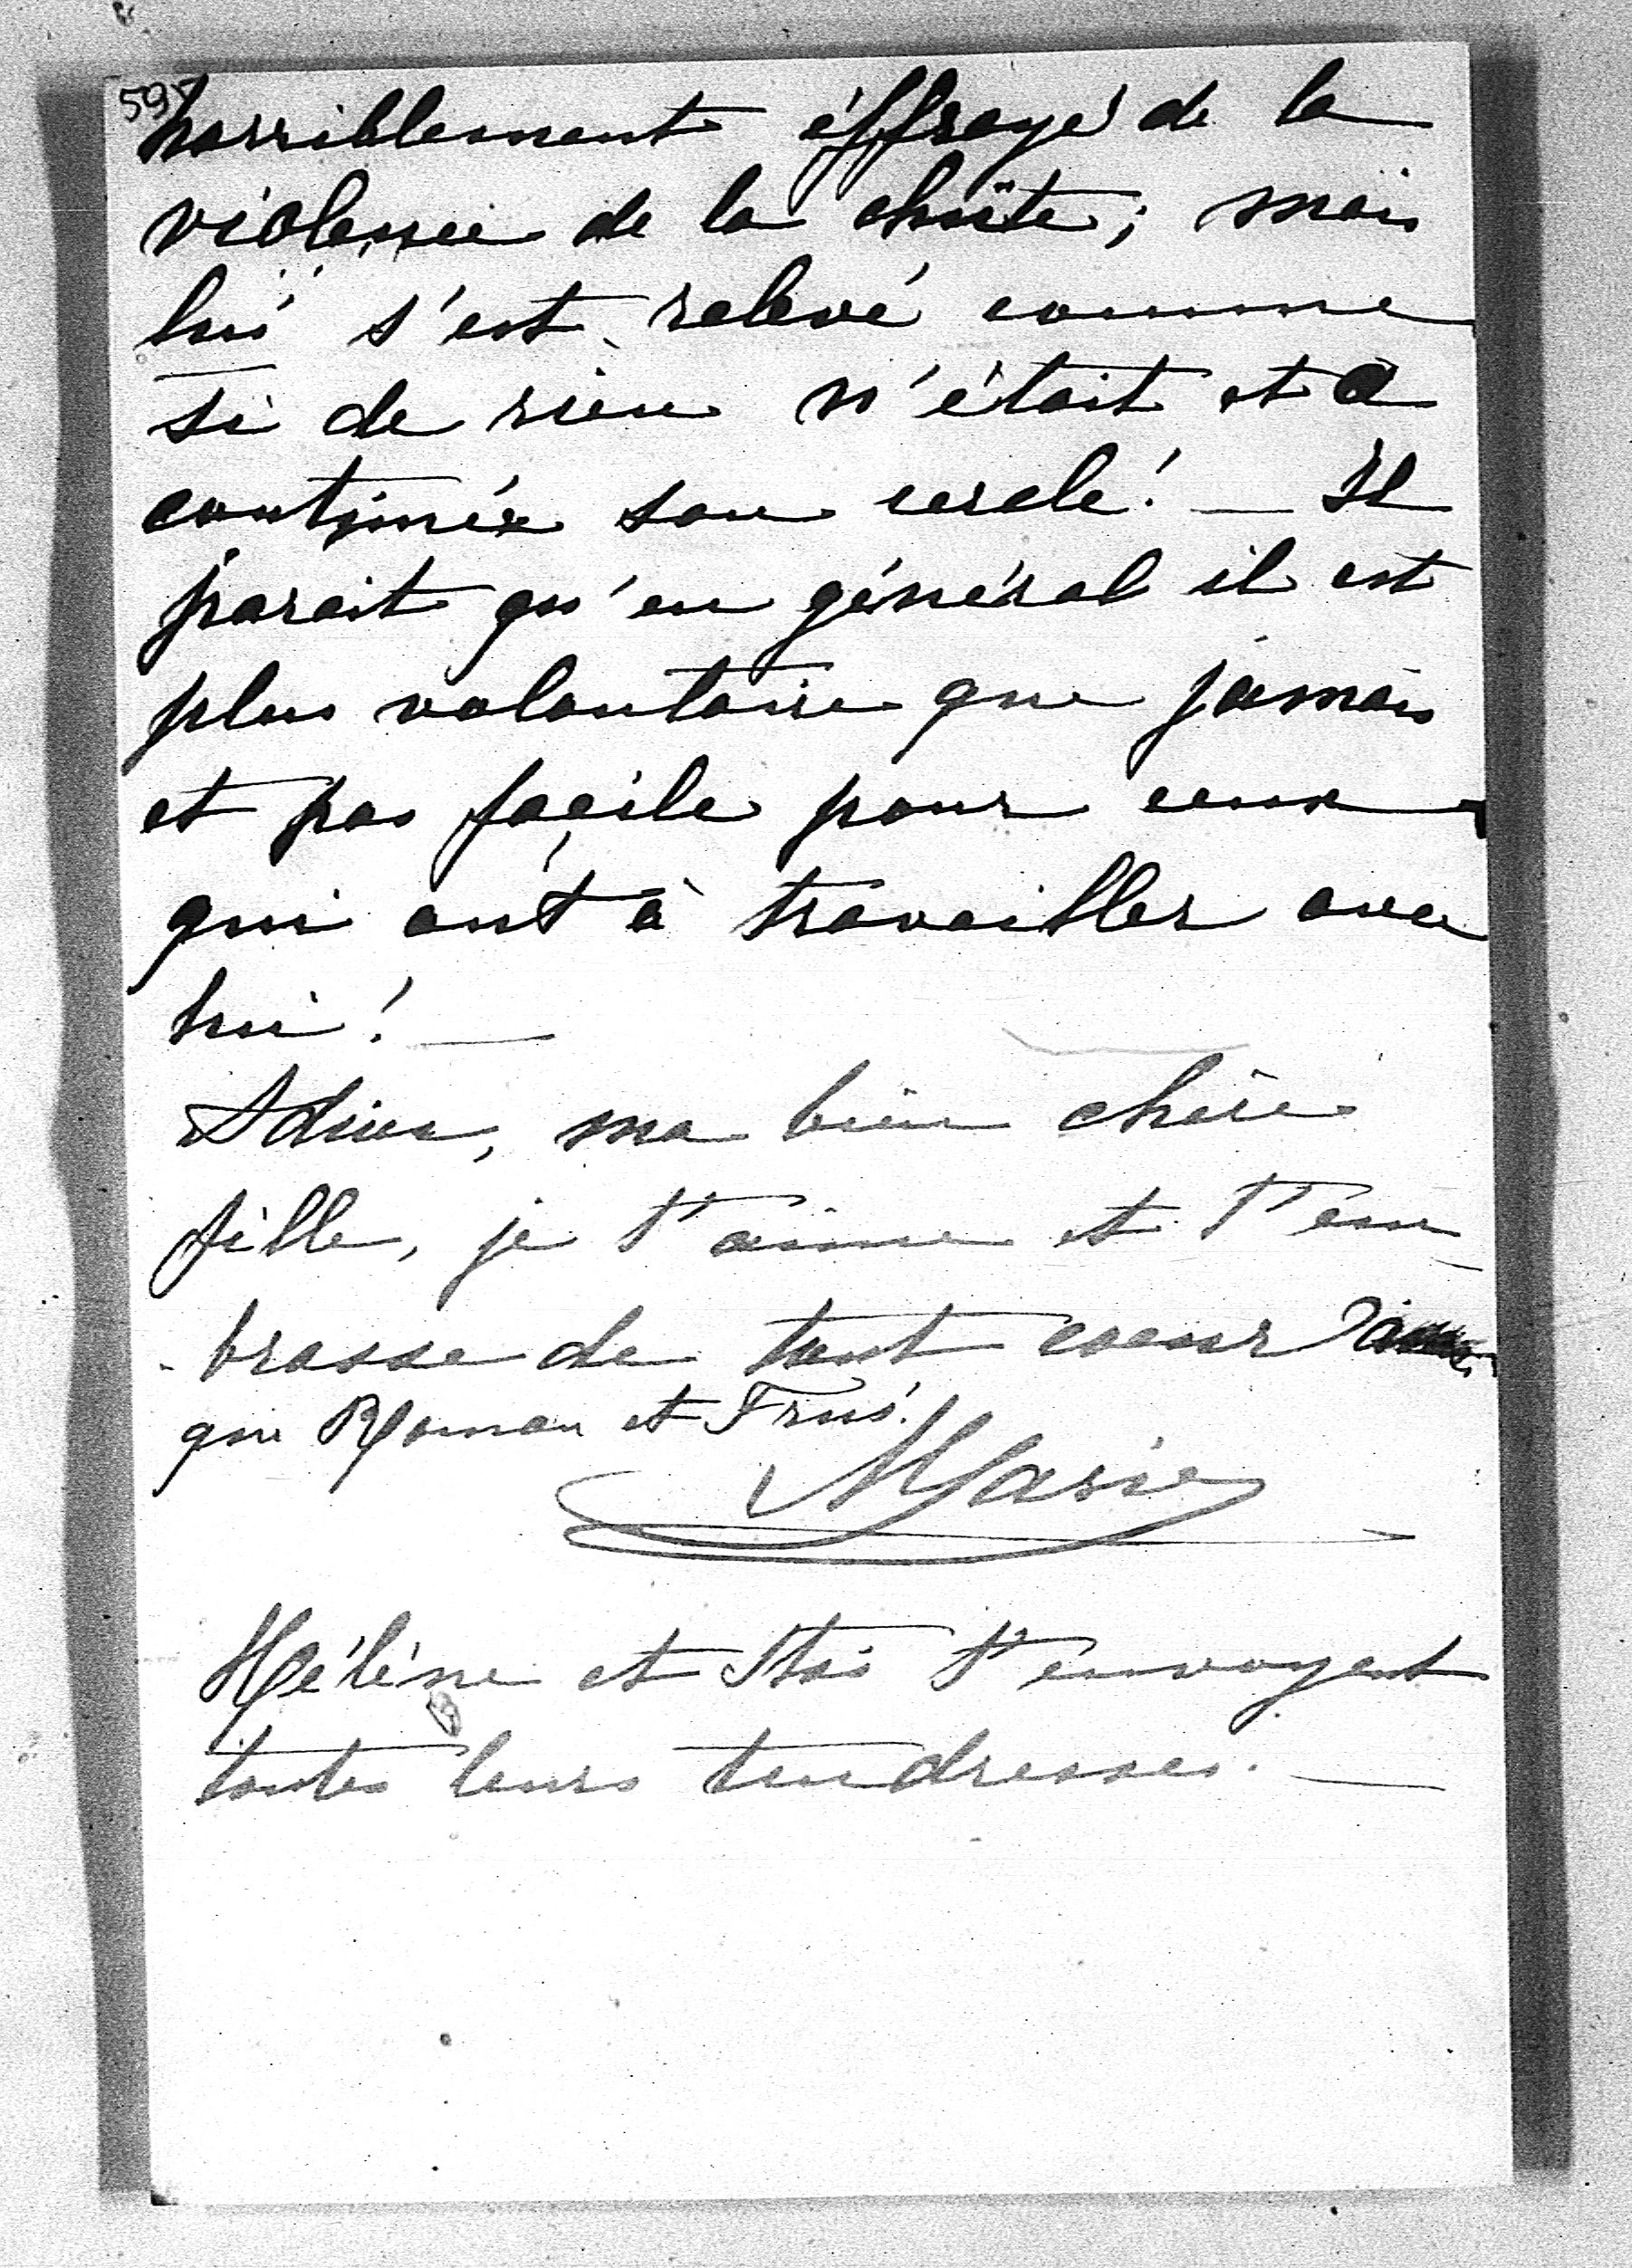 597
horriblement éffrayé de la
violence de la chûte; mais
lui s'est relevé comme
si de rien n'était et a
continué son cercle! — Il
parait qu'en général il est
plus volontaire que jamais
et pas facile pour ceux
qui ont à travailler avec
lui! —
Adieu, ma bien chère
fille, je t'aime et t'em-
-brasse de tout coeur
que Roman et
Marie
Hélène et Itsi t'envoyent
toutes leurs tendresses. —